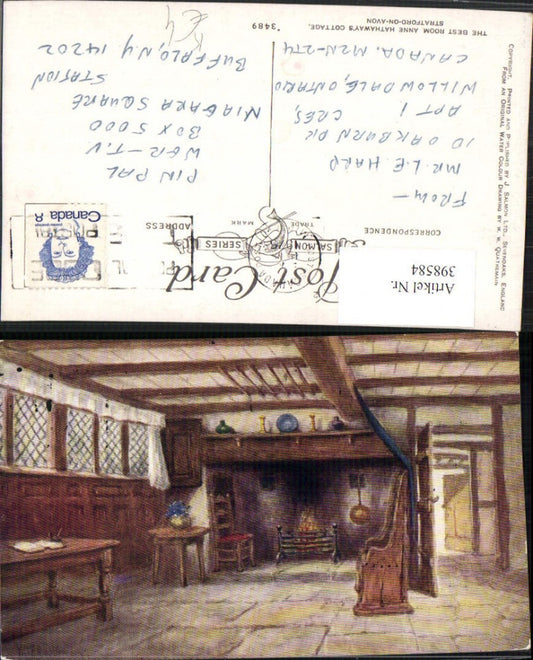 THE BEST ROOM, ANNE HATHAWAY'S COTTAGE,
STRATFORD-ON-AVON
*3489
COPYRIGHT, PRINTED AND PUBLISHED BY J. SALMON LTD., SEVENOAKS, ENGLAND
FROM AN ORIGINAL WATER COLOUR DRAWING BY W. W. QUATREMAIN
Post Card
SALMON SERIES
TRADE MARK
CORRESPONDENCE
ADDRESS
FROM —
MR. L.E. HARP
10 OAKBURN CRES,
APT 1
WILLOWDALE, ONTARIO
CANADA, M2N-2T4
PIN PAL
WGR-T.V
BOX 5000
NIAGARA SQUARE
STATION
BUFFALO, N.Y 14202
Canada 8
Artikel Nr.
398584